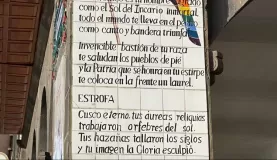 como el Sol del Incario inmortal,
todo el mundo te lleva en el pe
como canto y bandera triunfa
Invencible bastión de tu raza
te saludan los pueblos de pié
y la Patria que se honra en tu estirpe
te coloca en la frente un laurel.
ESTROFA
Cusco eterno, tus áureas reliquias
trabajaron orfebres del sol.
Tus hazañas tallaron los siglos
y tu imagen la Gloria esculpió.